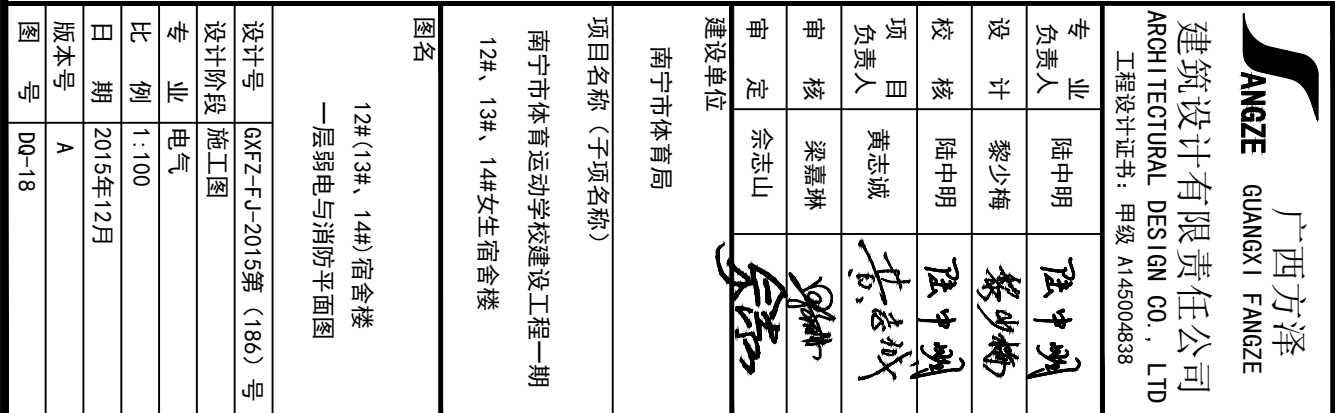 ANGZE
广西方泽
GUANGXI FANGZE
建筑设计有限责任公司
ARCHITECTURAL DESIGN CO., LTD
工程设计证书：甲级 A145004838
专业负责人 陆中明 陆中明
设计 黎少梅 黎少梅
校核 陆中明 陆中明
项目负责人 黄志诚 黄志诚
审核 梁嘉琳
审定 佘志山
建设单位
南宁市体育局
项目名称（子项名称）
南宁市体育运动学校建设工程一期
12#、13#、14#女生宿舍楼
图名
12#(13#、14#)宿舍楼
一层弱电与消防平面图
设计号 GXFZ-FJ-2015第（186）号
设计阶段 施工图
专业 电气
比例 1:100
日期 2015年12月
版本号 A
图号 DQ-18